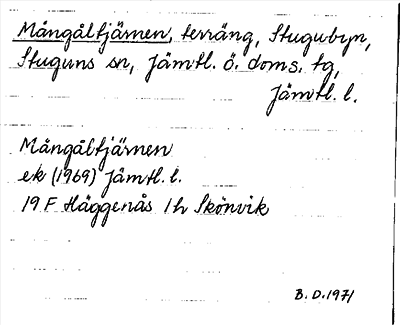 Mångåltjärnen, terräng, Stugubyn,
Stuguns sn, Jämtl. ö. doms. tg,
Jämtl. l.
Mångåltjärnen
ek (1969) Jämtl. l.
19 F Häggenås 1h Skönvik
B. D. 1971